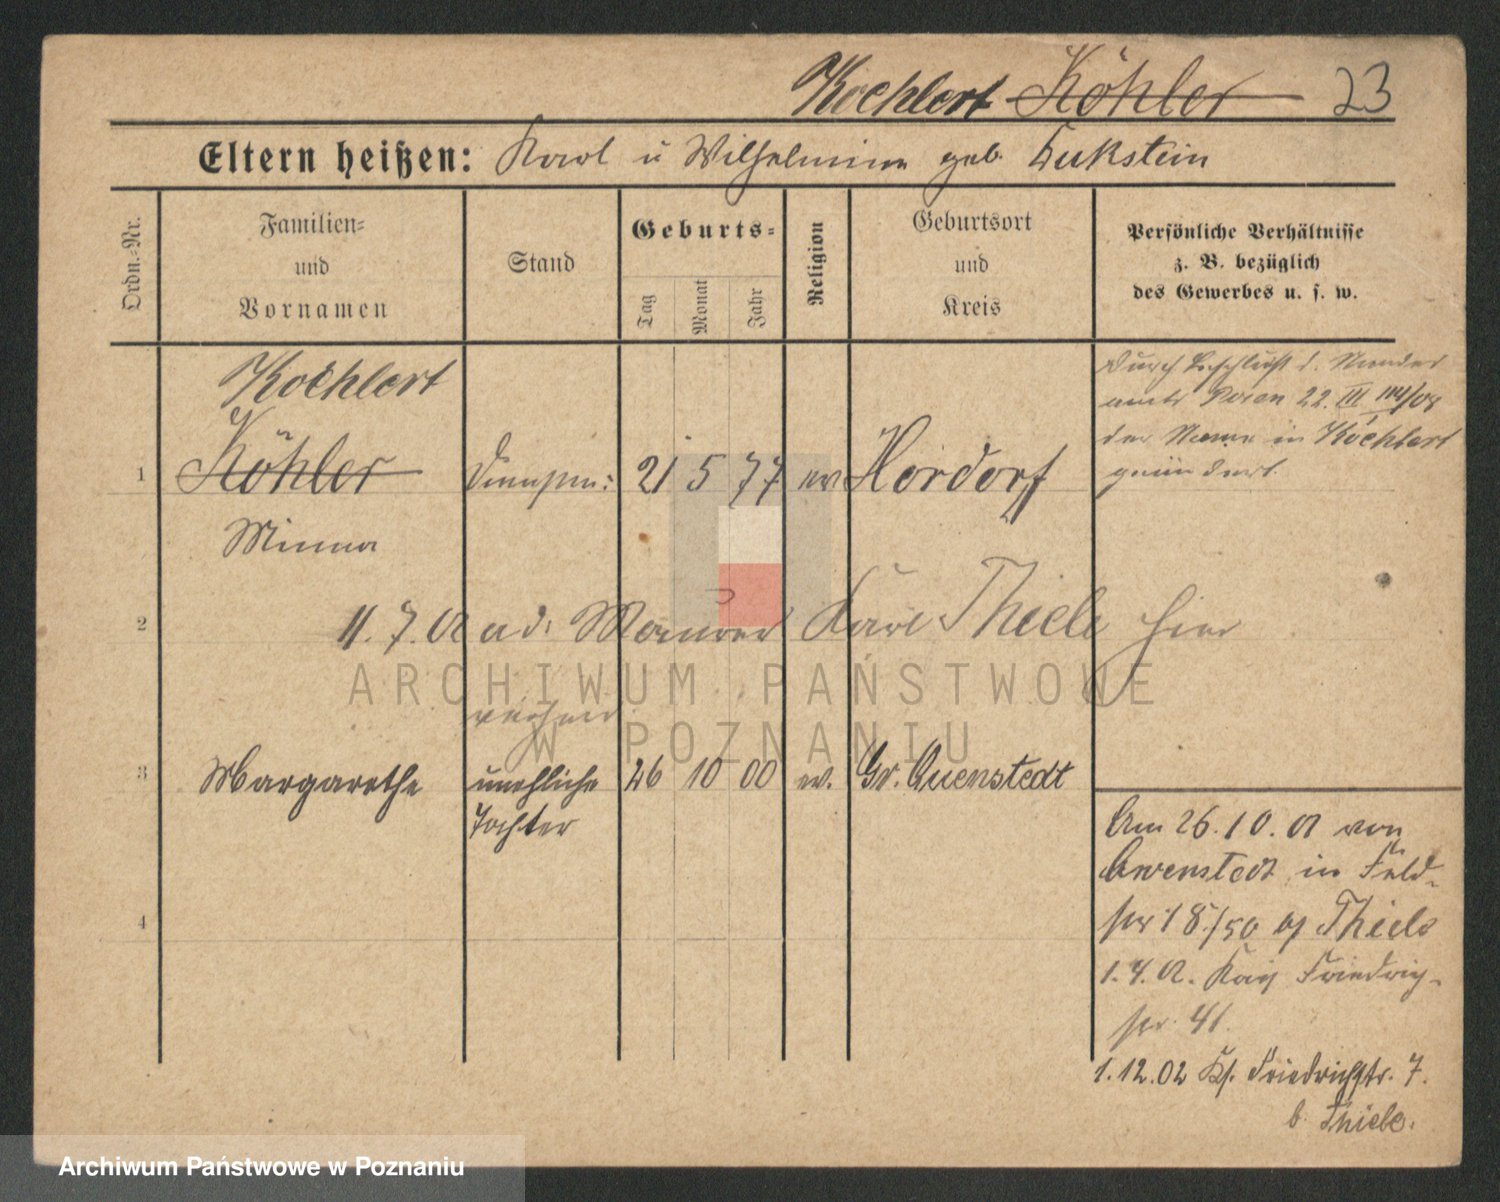 Kochlert Köhler 23
Eltern heißen: Karl u Wilhelmine geb. Lukstein
Ordn.-Nr.
Familien-
und
Vornamen
Stand
Geburts-
Tag
Monat
Jahr
Religion
Geburtsort
und
Kreis
Persönliche Verhältnisse
z. B. bezüglich
des Gewerbes u. s. w.
Kochlert
1 Köhler 21 5 77 ev Hordorf
Minna
Durch Beschluß d.
Posen 22. III
der Name in Kochlert
geändert.
2 11. 7. 01 Maurer Karl Thiele hier
3 Margarethe unehliche 26 10 00 ev. Gr. Quenstedt
Tochter
4
Am 26. 10. 01 von
in Feld-
str 18/50 Thiele
1. 4. 02. Friedrich-
str. 41.
1. 12. 02 Friedrichstr. 7.
b. Thiele.
ARCHIWUM PAŃSTWOWE
W POZNANIU
Archiwum Państwowe w Poznaniu